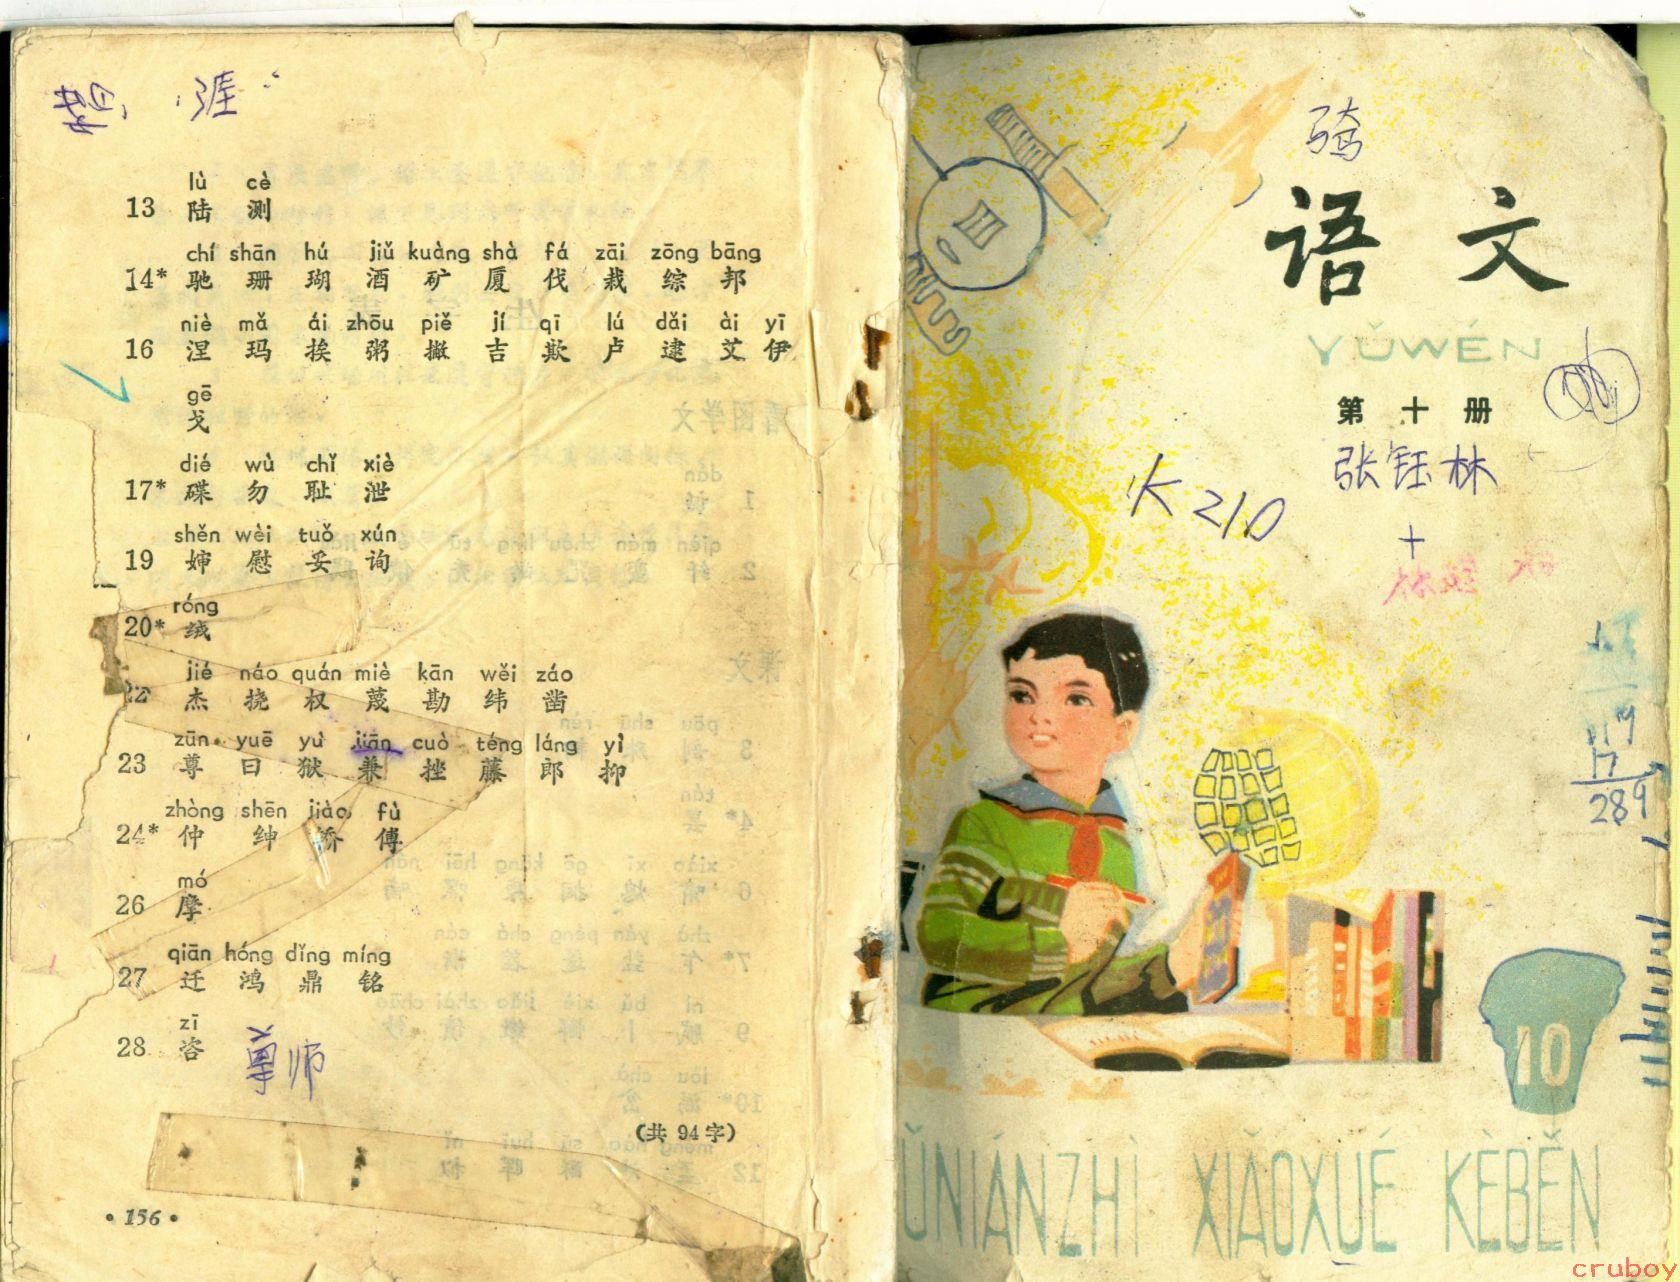 涯
lù cè
13 陆 测
chí shān hú jiǔ kuàng shà fá zāi zōng bāng
14* 驰 珊 瑚 酒 矿 厦 伐 栽 综 邦
niè mǎ ái zhōu piě jí qī lú dǎi ài yī
16 涅 玛 挨 粥 撇 吉 欺 卢 逮 艾 伊
gē
戈
dié wù chǐ xiè
17* 碟 勿 耻 泄
shěn wèi tuǒ xún
19 婶 慰 妥 询
róng
20* 绒
jié náo quán miè kān wěi záo
22 杰 挠 权 蔑 勘 纬 凿
zūn yuē yù jiān cuò téng láng yì
23 尊 曰 狱 兼 挫 藤 郎 抑
zhòng shēn jiào fù
24* 仲 绅 轿 傅
mó
26 摩
qiān hóng dǐng míng
27 迁 鸿 鼎 铭
zī
28 咨
尊师
(共 94 字)
• 156 •
语 文
YǓWÉN
第 十 册
张钰林
K210
+
119
17
289
10
ǓNIÁNZHÌ XIǍOXUÉ KÈBĚN
cruboy